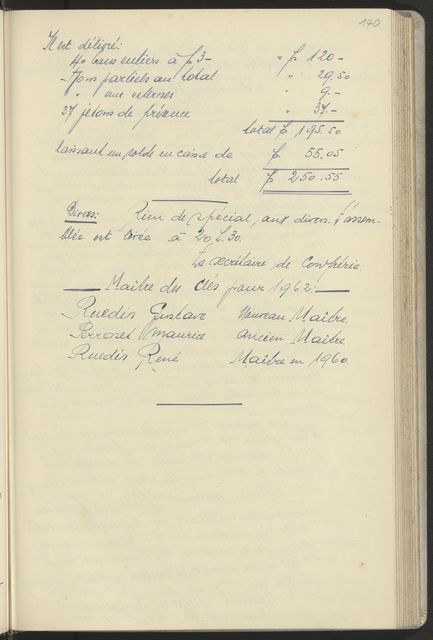 140
Il est délivré:
40 bons entiers à f 3.- = f 120.-
- 7 bons partiels au total " 29.50
" aux internes " 9.-
37 jetons de présence " 37.-
total f 195.50
laissant un solde en caisse de f 55.05
total f 250.55
Divers: Rien de spécial, aux divers. l'assem-
blée est levée à 20 h. 30.
Le secrétaire de Confrérie.
Maître des clés pour 1962:
Ruedin Gustave Nouveau Maître.
Perroset Maurice ancien Maître
Ruedin René Maître en 1960